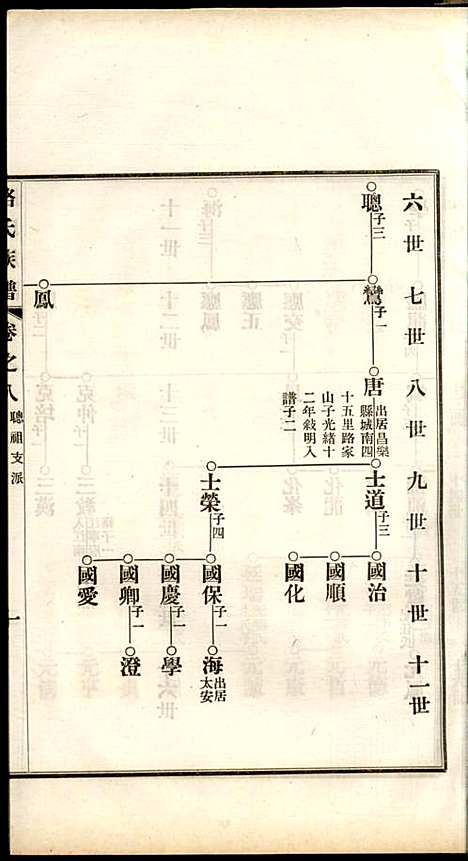 六世 七世 八世 九世 十世 十一世
聰 子三
鸞 子一
唐 子二
出居昌樂
縣城南四
十五里路家
山子光緒十
二年敘明入
譜
士道 子三
國治
國順
國化
士榮 子四
國保 子一
海 出居太安
國慶 子一
學
國卿 子一
澄
國愛
鳳
氏族譜
卷之八
聰祖支派
一